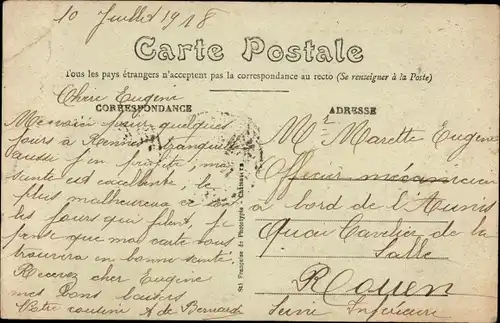 10 Juillet 1918
Carte Postale
Tous les pays étrangers n'acceptent pas la correspondance au recto (Se renseigner à la Poste)
CORRESPONDANCE
Cher Eugène
Me voici pour quelques
jours à Rennes tranquille
aussi j'en profite, ma
santé est excellente, le
plus malheureux ce sont
les jours qui filent, je
pense que ma carte vous
trouvera en bonne santé.
Recevez cher Eugène
mes bons baisers
Votre cousine A de Bernard
Sté Française de Phototypie
ADRESSE
Mr Marette Eugène
Officier mécanicien
à bord de l'Aunis
Quai Cavelier de la
Salle
Rouen
Seine Inférieure